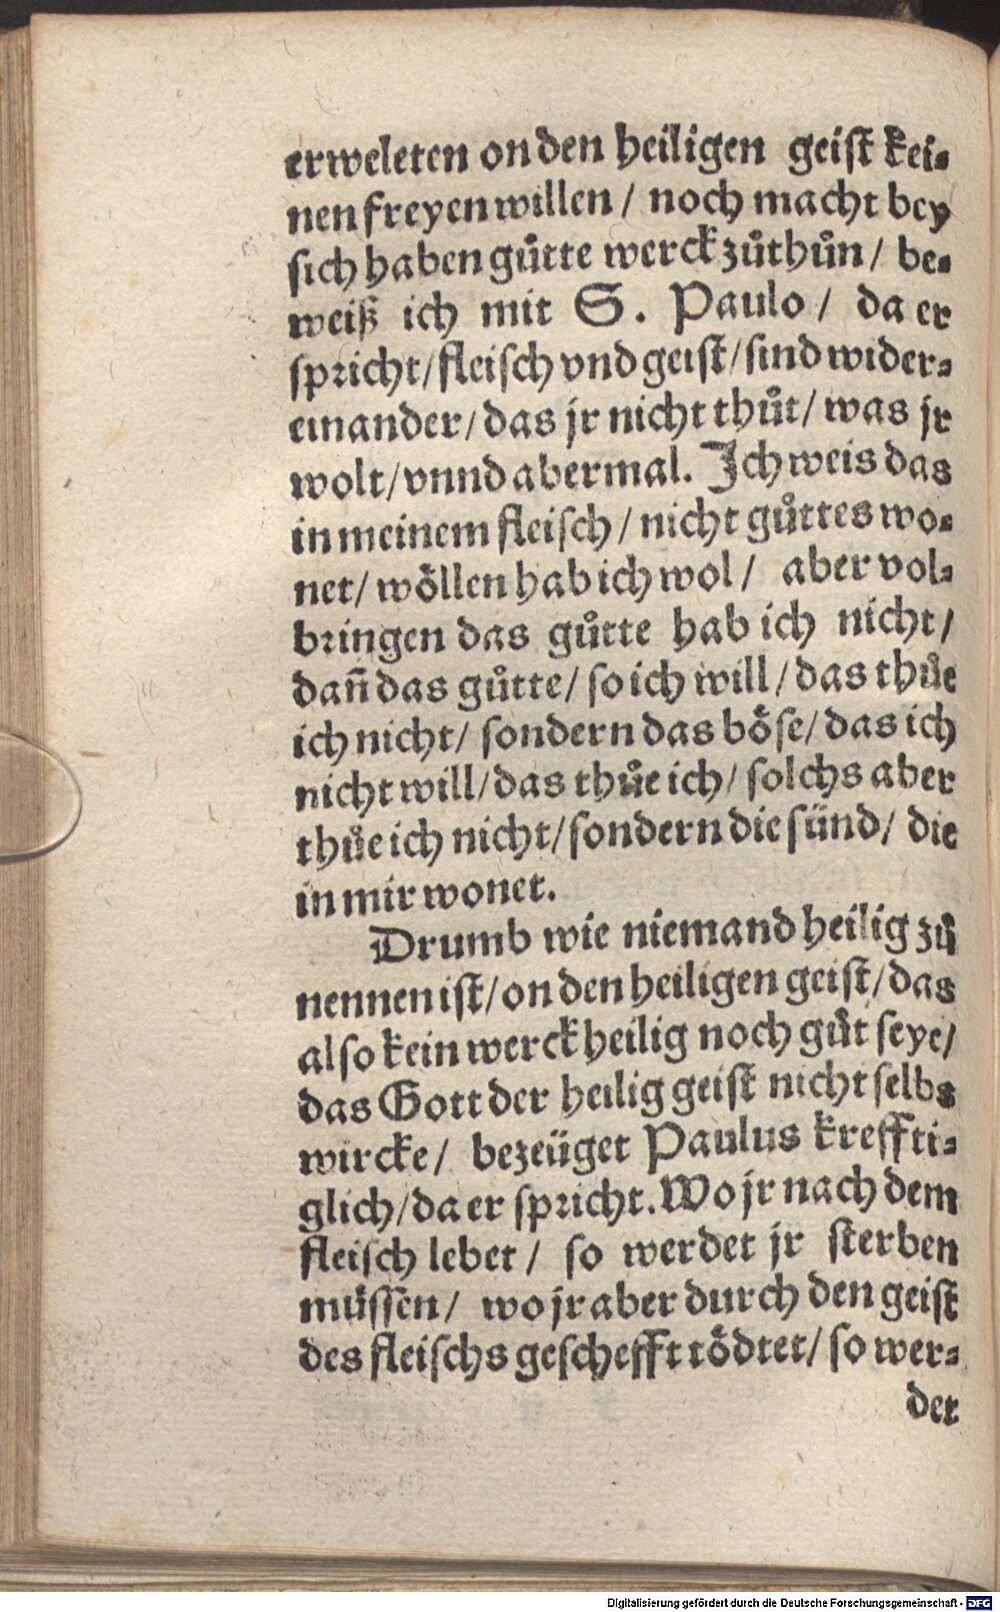 erweleten on den heiligen geist kei-
nen freyen willen / noch macht bey
sich haben gůtte werck zůthůn / be-
weiß ich mit S. Paulo / da er
spricht / fleisch vnd geist / sind wider-
einander / das jr nicht thůt / was jr
wolt / vnnd abermal. Ich weis das
in meinem fleisch / nicht gůttes wo-
net / wöllen hab ich wol / aber vol-
bringen das gůtte hab ich nicht /
dañ das gůtte / so ich will / das thůe
ich nicht / sondern das böse / das ich
nicht will / das thůe ich / solchs aber
thůe ich nicht / sondern die sünd / die
in mir wonet.
Drumb wie niemand heilig zů
nennen ist / on den heiligen geist / das
also kein werck heilig noch gůt seye /
das Gott der heilig geist nicht selbs
wircke / bezeüget Paulus kreffti-
glich / da er spricht. Wo jr nach dem
fleisch lebet / so werdet jr sterben
müssen / wo jr aber durch den geist
des fleischs geschefft tödtet / so wer-
det
Digitalisierung gefördert durch die Deutsche Forschungsgemeinschaft - DFG